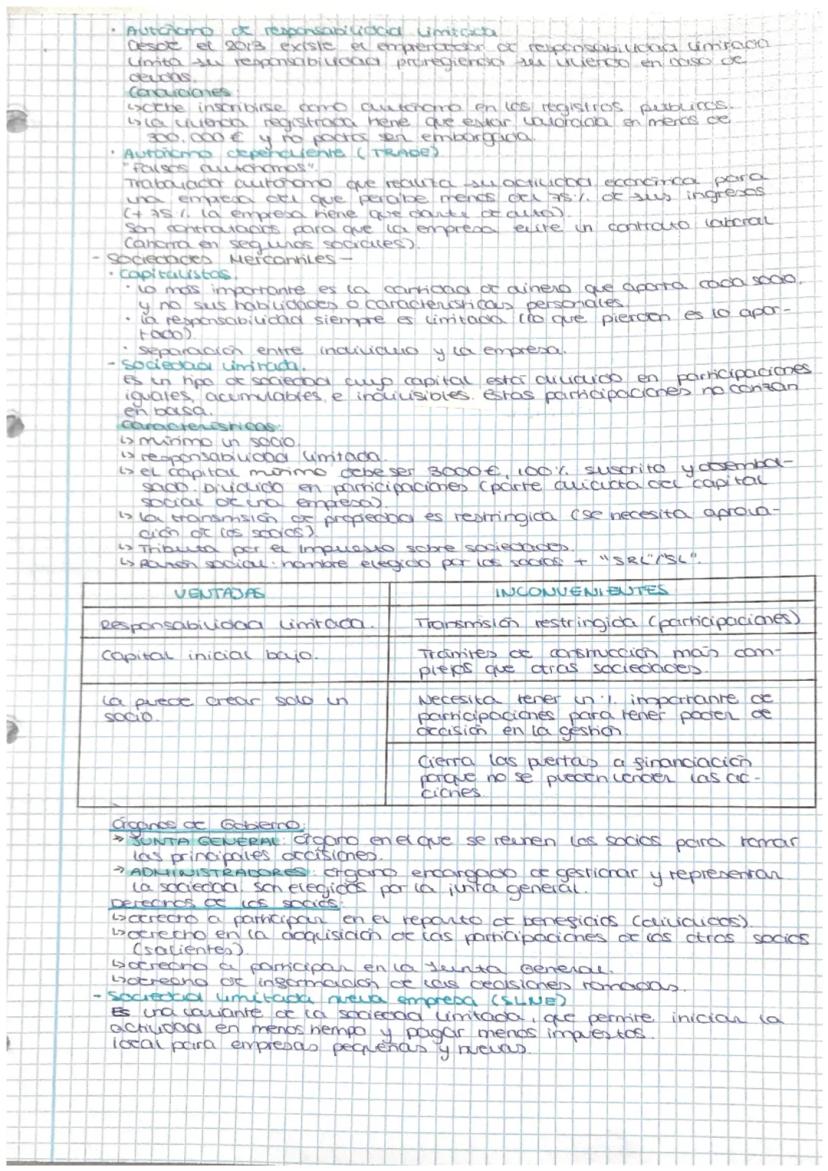 · Autónomo de responsabilidad limitada
Desde el 2013 existe el emprendedor de responsabilidad limitada
limita su responsabilidad protegiendo su vivienda en caso de
deudas.
Condiciones:
↳ debe inscribirse como autónomo en los registros públicos.
↳ la vivienda registrada tiene que estar valorada en menos de
300.000 € y no podrá ser embargada.
· Autónomo dependiente (TRADE)
"Falsos autónomos"
Trabajador autónomo que realiza su actividad económica para
una empresa del que percibe menos del 75% de sus ingresos
(+ 75% la empresa tiene que darte de alta).
Son contratados para que la empresa evite un contrato laboral
(ahorra en seguros sociales).
- Sociedades Mercantiles -
· Capitalistas.
· lo más importante es la cantidad de dinero que aporta cada socio,
y no sus habilidades o características personales.
· la responsabilidad siempre es limitada (lo que pierden es lo apor-
tado)
· separación entre individuo y la empresa.
- Sociedad limitada.
Es un tipo de sociedad cuyo capital está dividido en participaciones
iguales, acumulables e indivisibles. Estas participaciones no cotizan
en bolsa.
Características:
↳ mínimo un socio.
↳ responsabilidad limitada.
↳ el capital mínimo debe ser 3000€, 100% suscrito y desembol-
sado. Dividido en participaciones (parte alícuota del capital
social de una empresa).
↳ la transmisión de propiedad es restringida (se necesita aproba-
ción de los socios).
↳ Tributa por el impuesto sobre sociedades.
↳ Razón social: nombre elegido por los socios + "SRL"/"SL".
VENTAJAS INCONVENIENTES
Responsabilidad limitada. Transmisión restringida (participaciones)
Capital inicial bajo. Trámites de construcción más com-
plejos que otras sociedades.
La puede crear solo un
socio.
Necesita tener un % importante de
participaciones para tener poder de
decisión en la gestión.
Cierra las puertas a financiación
porque no se pueden vender las ac-
ciones.
Órganos de Gobierno:
→ JUNTA GENERAL: órgano en el que se reúnen los socios para tomar
las principales decisiones.
→ ADMINISTRADORES: órgano encargado de gestionar y representar
la sociedad, son elegidos por la junta general.
Derechos de los socios:
↳ derecho a participar en el reparto de beneficios (dividendos).
↳ derecho en la adquisición de las participaciones de los otros socios
(salientes).
↳ derecho a participar en la Junta General.
↳ derecho de información de las decisiones tomadas.
- Sociedad limitada nueva empresa (SLNE)
Es una variante de la sociedad limitada, que permite iniciar la
actividad en menos tiempo y pagar menos impuestos.
Ideal para empresas pequeñas y nuevas.